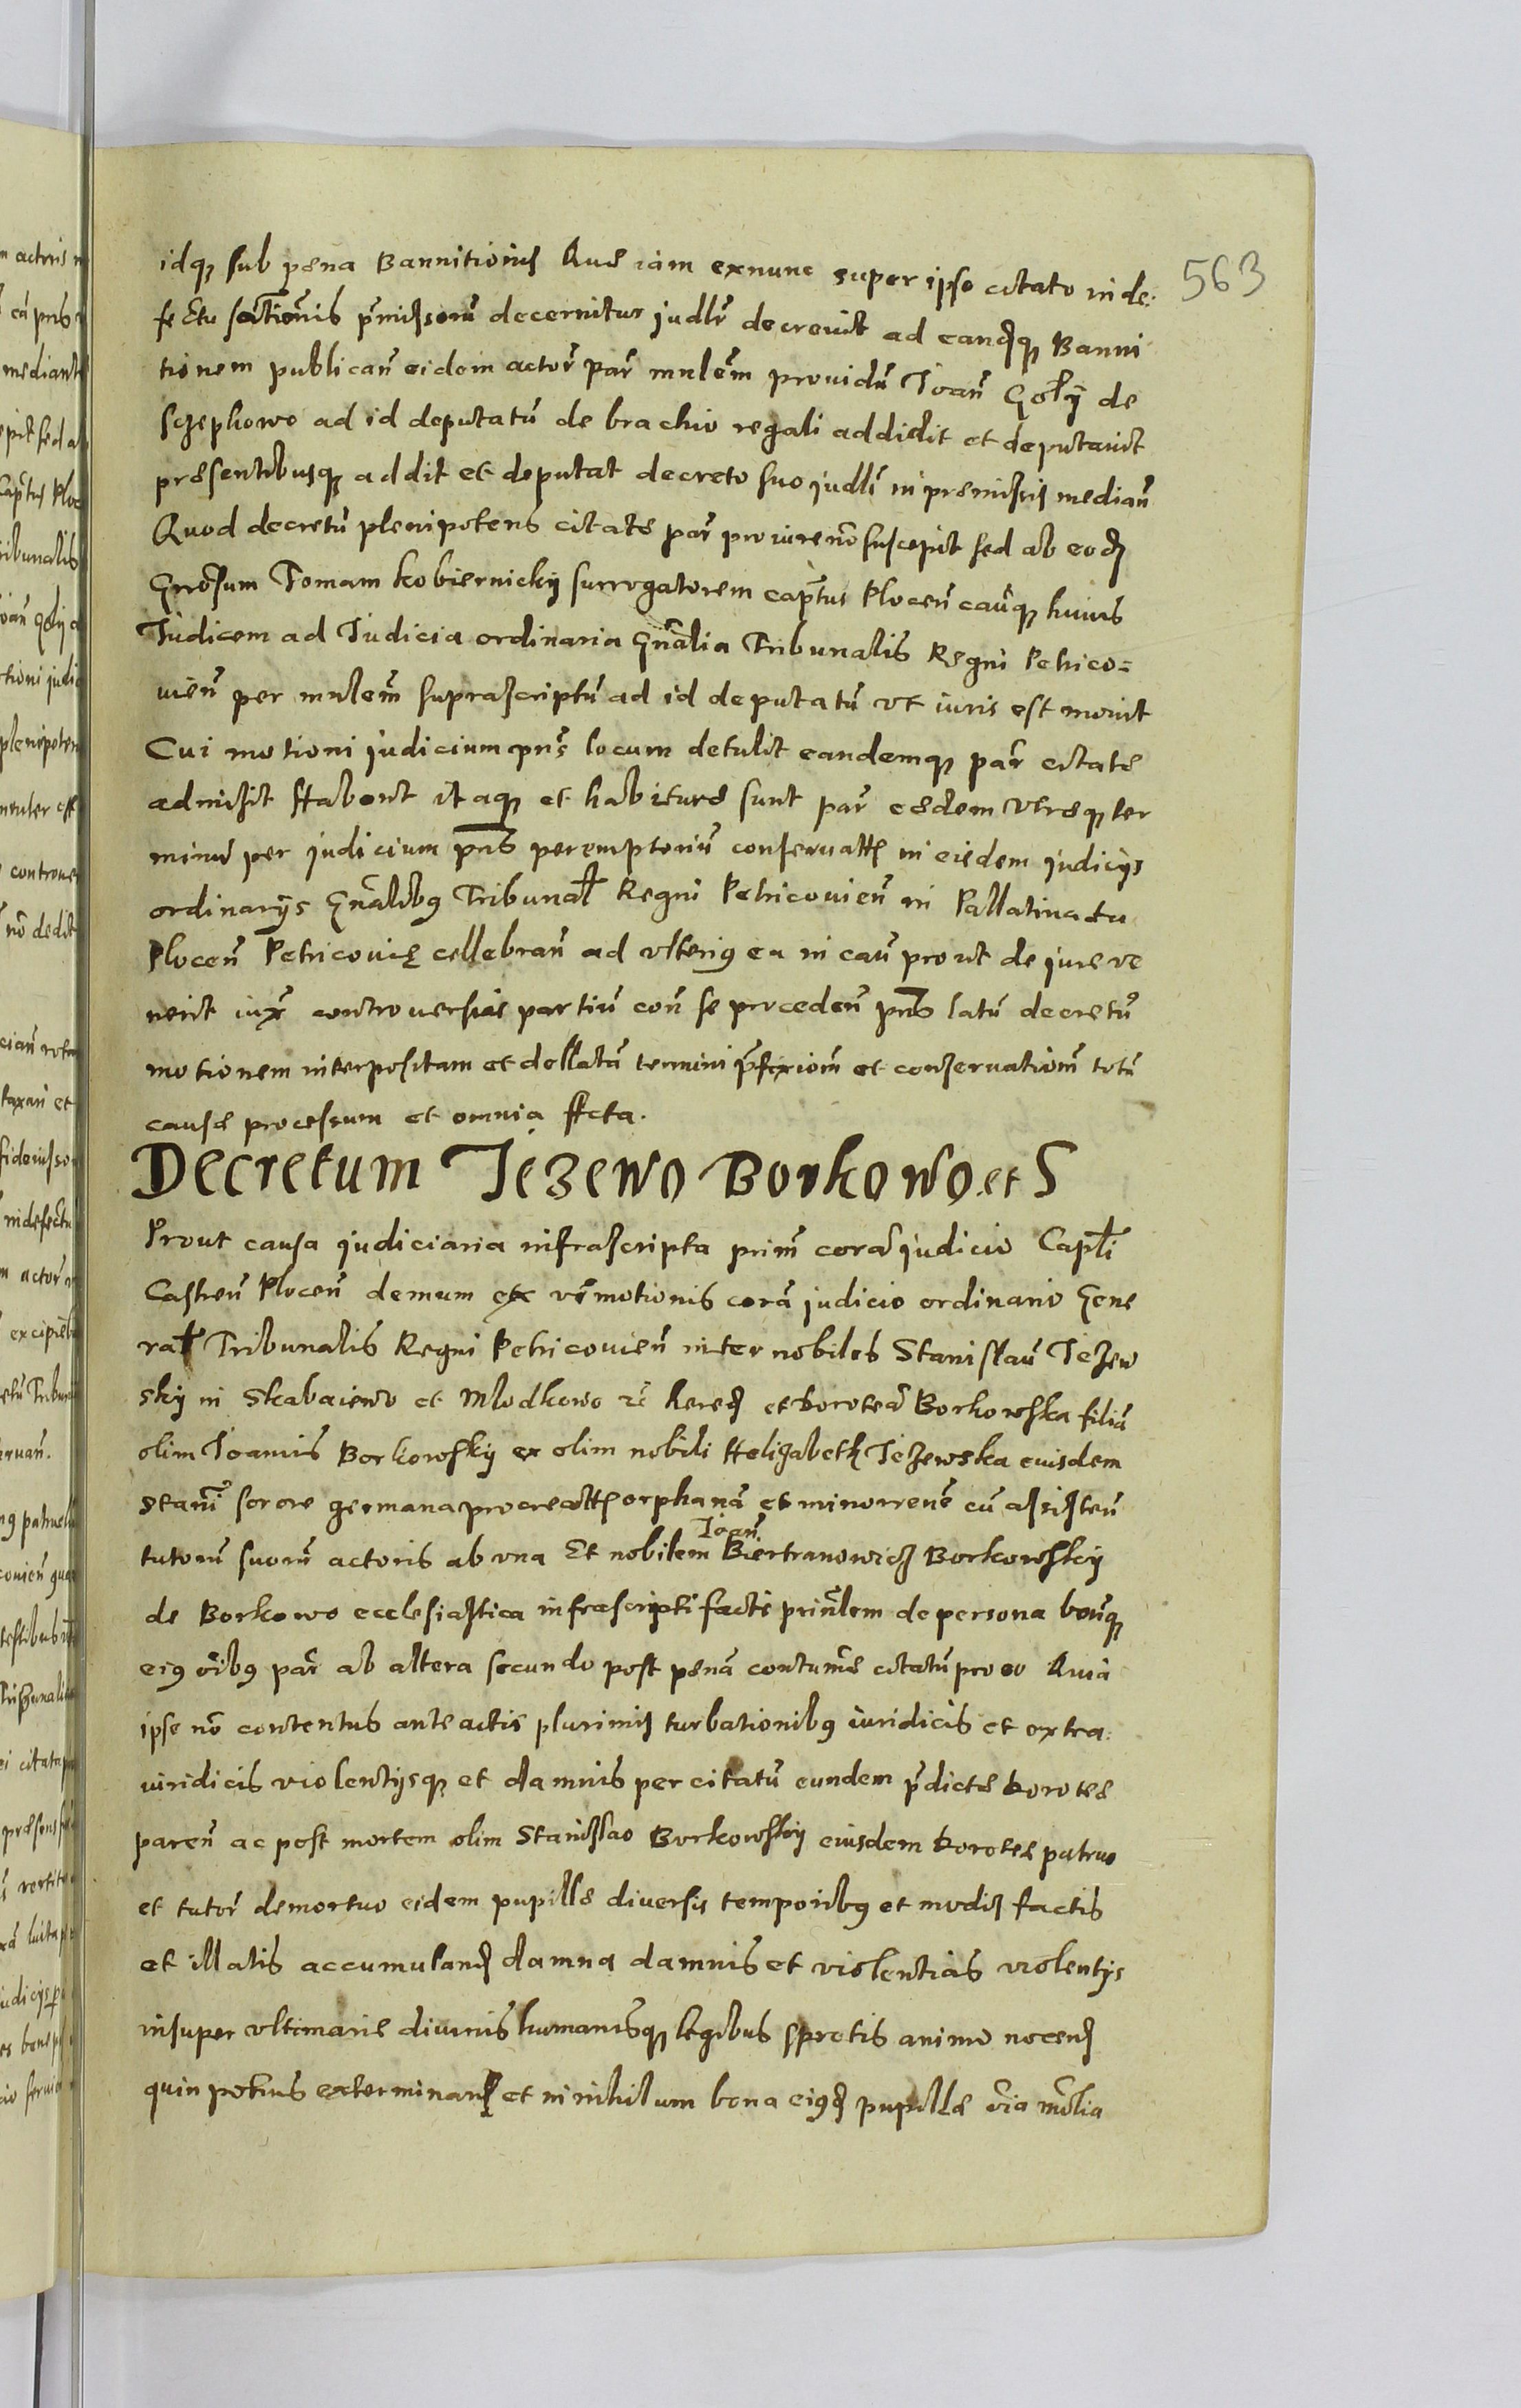 563
idq₃ sub pęna Bannitionis Quę iam exnunc super ipso citato in de-
fectu factiōnis p̄missorū decernitur judlr̄ decrevit ad eandq₃ Banni
tionem publicañ eidem actor̄ par̄ mnlēm providū Joañ Goły de
Szephowo ad id deputatū de brachio regali addidit et deputavit
pręsentibusq₃ addit et deputat decreto suo judlī in pręmissis mediañ
Quod decretū plenipotens citatę par̄ pro iure nō suscepit sed ab eod
Gnrōsum Tomam kobiernicky surrogatorem capt̄us Płoceñ caūq₃ huius
Judicem ad Judicia ordinaria Gn̄alia Tribunalis Regni Petrico=
vieñ per mnlēm suprascriptū ad id deputatū vt iuris est movit
Cui motioni judicium pn̄s locum detulit eandemq₃ par̄ citatę
admisit Habent itaq₃ et habiturę sunt par̄ eędem vtręq₃ ter
minū per judicium pn̄s peremptoriū conservatt in eisdem judicijs
ordinarijs Gn̄alibꝰ Tribunał Regni Petricovieñ in Pallatinatu
Płoceñ Petricovię cellebrañ ad vlteriꝰ ea in caū prout de jure ve
nerit iux̄ controversias partiū coñ se procedeñ pn̄s latū decretū
motionem interpositam et dellatā termini p̄fixioñ et conservationm̄ totū
causę processum et omnia ffcta.
Decretum Jezewo Borkowo et S
Prout causa judiciaria infrascripta prim̄ corā judicio Capłi
Castreñ Płoceñ demum ex vi motionis corā judicio ordinario Gene
rał Tribunalis Regni Petricovieñ inter nobiles Stanisłaū Jezew
sky in Skabaiewo et Mlodkowo zc̄ hered et Doroteā Borkowska filiā
olim Joannis Borkowsky ex olim nobili Helizabeth Jezewska eiusdem
Stanī sorore germana procreatt orphanā et minorrenē cū assisteñ
tutorū suorū actoris ab vna Et nobilem Joañ Biertranowicz Borkowsky
de Borkowo ecclesiastica infrascripti facti prin̄lem de persona bonīsq₃
eiꝰ oībꝰ par̄ ab altera secundo post pęnā contum̄ę citatū pro eo Quia
ipse nō contentus ante actis plurimis turbationibꝰ iuridicis et extra-
iuridicis violentijsq₃ et damnis per citatū eundem p̄dictę Dorotee
pareñ ac post mortem olim Stanislao Borkowsky eiusdem Doroteę patruo
et tutor̄ demortuo eidem pupillę diversis temporibꝰ et modis factis
et illatis accumuland damna damnis et violentias violentijs
insuper vltimarię divinis humanisq₃ legibus spretis animo nocend
quin potius exterminand et in nihilum bona eiꝰd pupillę oīa mobīlia